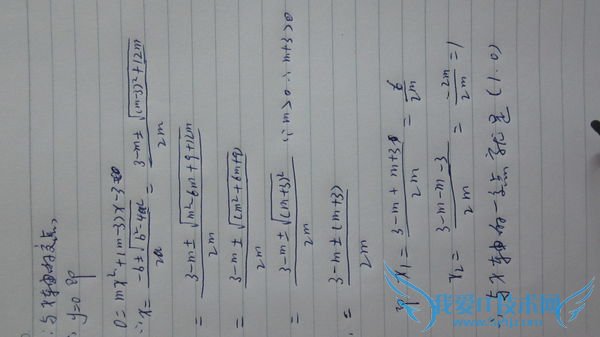 ∵与x轴的交点,
∴y=0 即
0=mx²+(m-3)x-3
∴x= \frac{-b±\sqrt{b²-4ac}}{2a} = \frac{3-m±\sqrt{(m-3)²+12m}}{2m}
= \frac{3-m±\sqrt{m²-6m+9+12m}}{2m}
= \frac{3-m±\sqrt{(m²+6m+9)}}{2m}
= \frac{3-m±\sqrt{(m+3)²}}{2m} ∵m>0∴m+3>0
∴= \frac{3-m±(m+3)}{2m}
即 x₁= \frac{3-m+m+3}{2m} = \frac{6}{2m}
x₂= \frac{3-m-m-3}{2m} = \frac{-2m}{2m} =1
∴与x轴的一交点就是(1.0)
我爱IT技术网